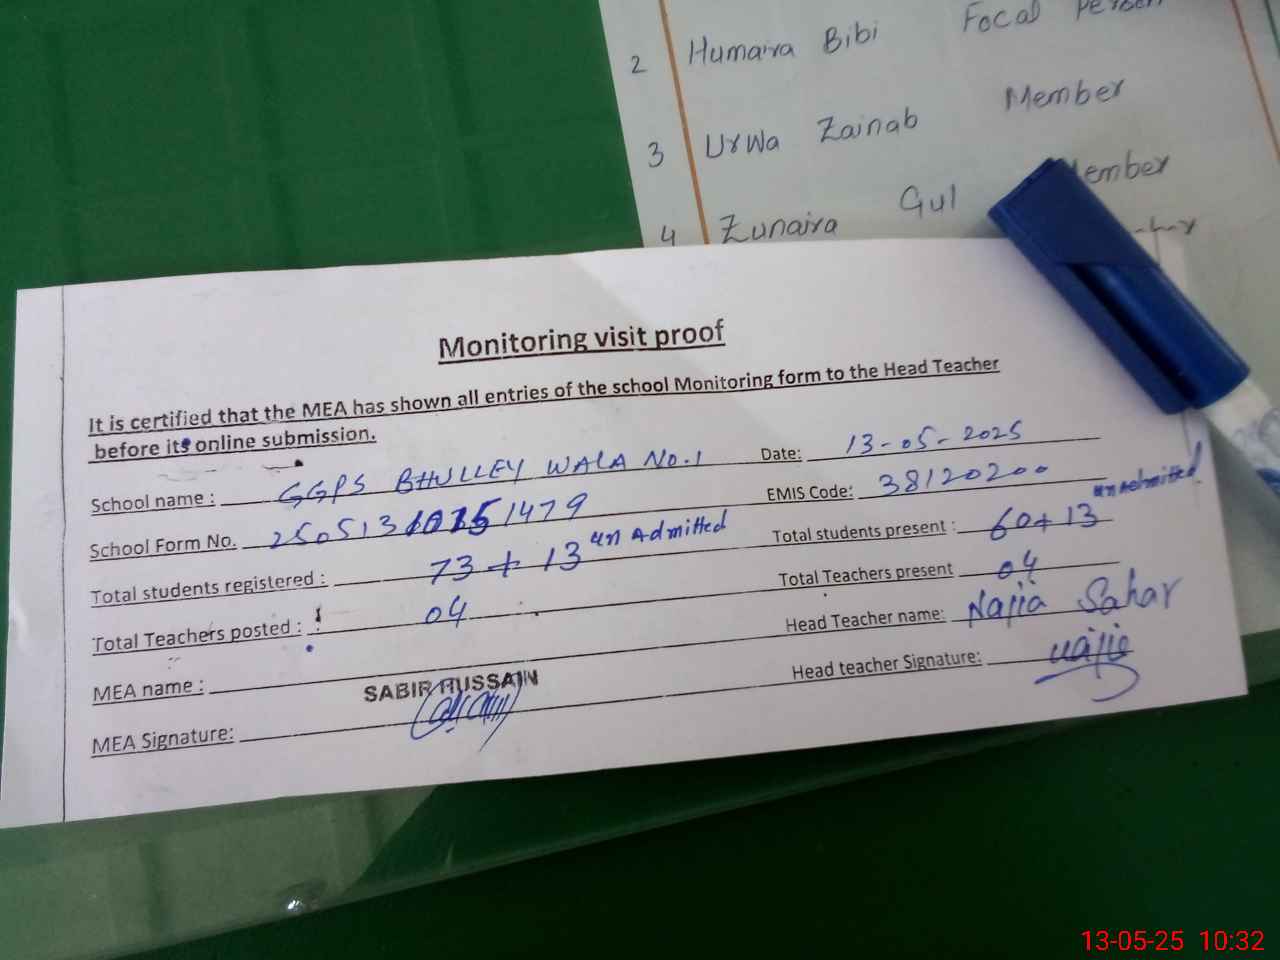 2 Humaira Bibi Focal Person
3 Urwa Zainab Member
4 Zunaira Gul Member
Monitoring visit proof
It is certified that the MEA has shown all entries of the school Monitoring form to the Head Teacher
before its online submission.
School name : GGPS BHULLEY WALA No.1 Date: 13-05-2025
School Form No. EMIS Code: 38120200
Total students registered : 73 + 13 un Admitted Total students present : 60+13 un Admitted
Total Teachers posted : 04 Total Teachers present 04
MEA name : SABIR HUSSAIN Head Teacher name: Najia Sahar
MEA Signature: Head teacher Signature: Najia
13-05-25 10:32